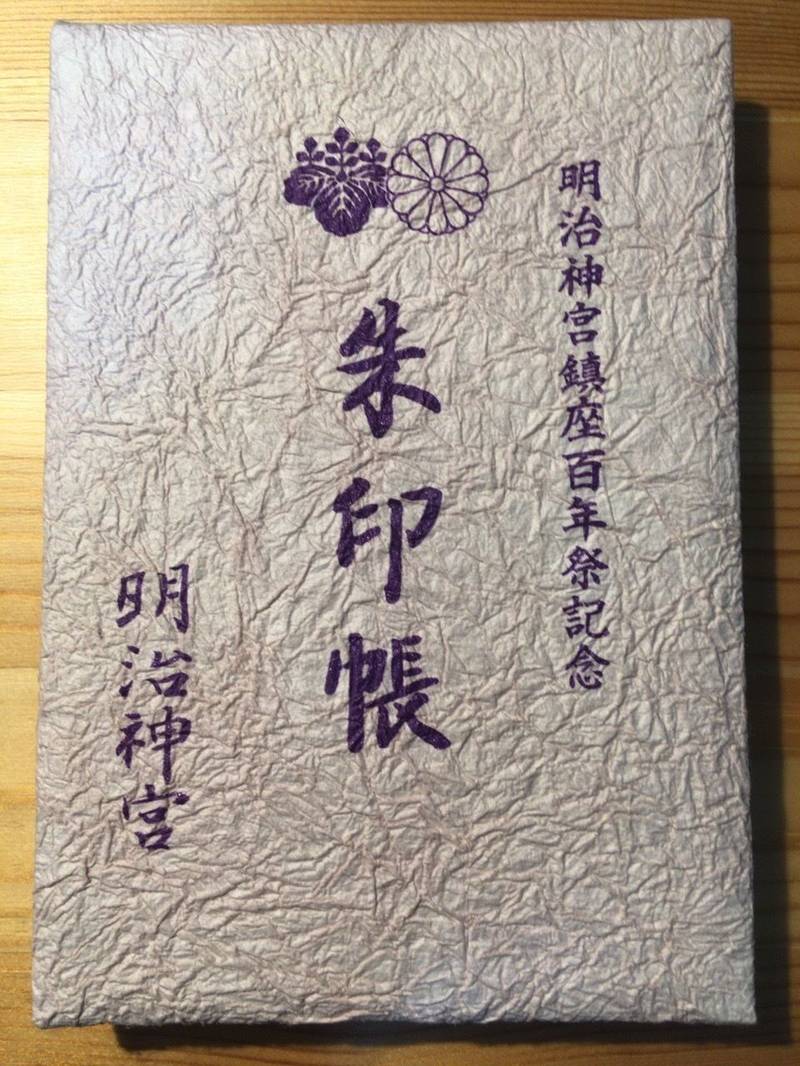 明治神宮鎮座百年祭記念
朱印帳
明治神宮